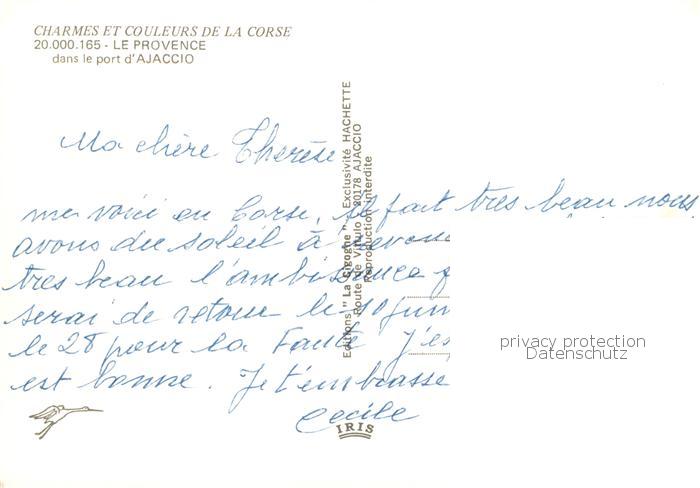 CHARMES ET COULEURS DE LA CORSE
20.000.165 - LE PROVENCE
dans le port d'AJACCIO
Ma chère Therèse
me voici en Corse, il fait tres beau nous
avons du soleil à
tres beau l'ambiance
serai de retour le 10 juin
le 28 pour la J'es
est bonne. Je t'embrasse
Cecile
Editions "La Cigogne" Exclusivité HACHETTE
Route de 20178 AJACCIO
Reproduction interdite
IRIS
privacy protection
Datenschutz